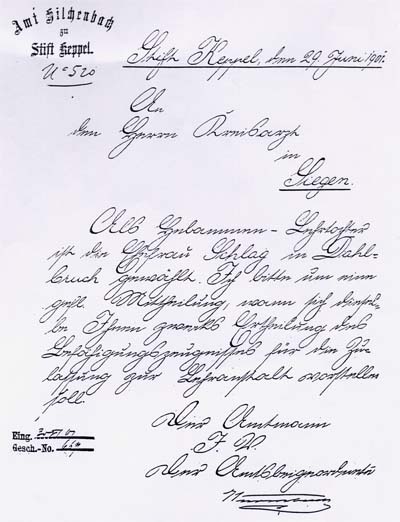 Amt Hilchenbach
zu
Stift Keppel.
No 520
Stift Keppel, den 29. Juni 1901.
An
den Herrn Kreisarzt
in
Siegen.
Als Hebammen-Lehrtochter
ist die Ehefrau Schlag in Dahl-
bruch gewählt. Ich bitte um eine
gefl. Mittheilung, wann sich diesel-
be Ihnen zwecks Ertheilung des
Befähigungszeugnisses für die Zu-
lassung zur Lehranstalt vorstellen
soll.
Der Amtmann
I. V.
Der Amtsbeigeordnete
Eing.
Gesch.-No.